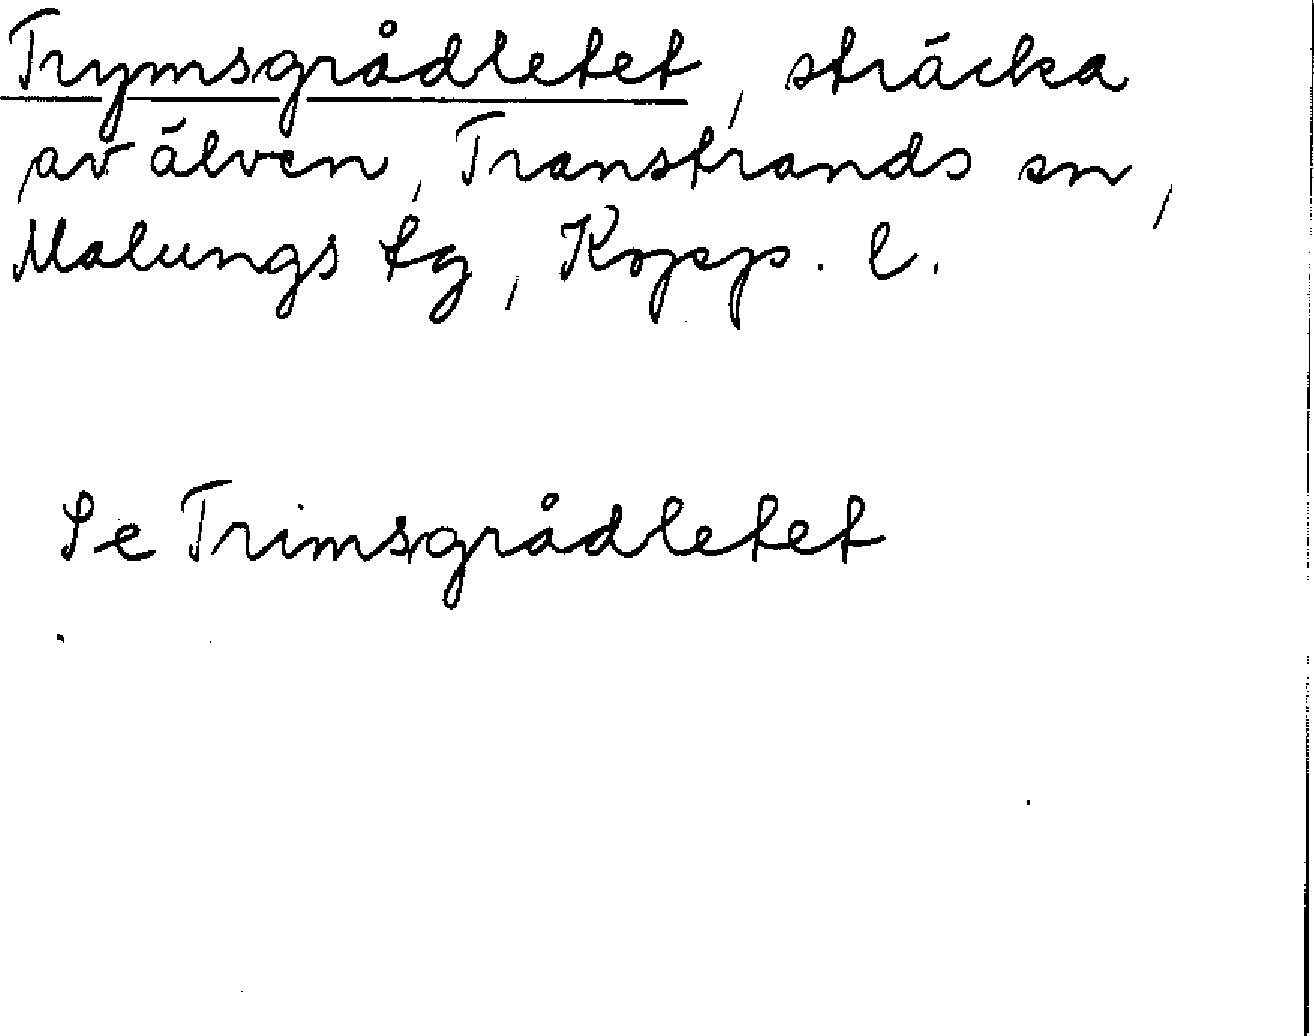 Trymsgrådletet, sträcka
av älven, Transtrands sn,
Malungs tg, Kopp. l.
Se Trimsgrådletet